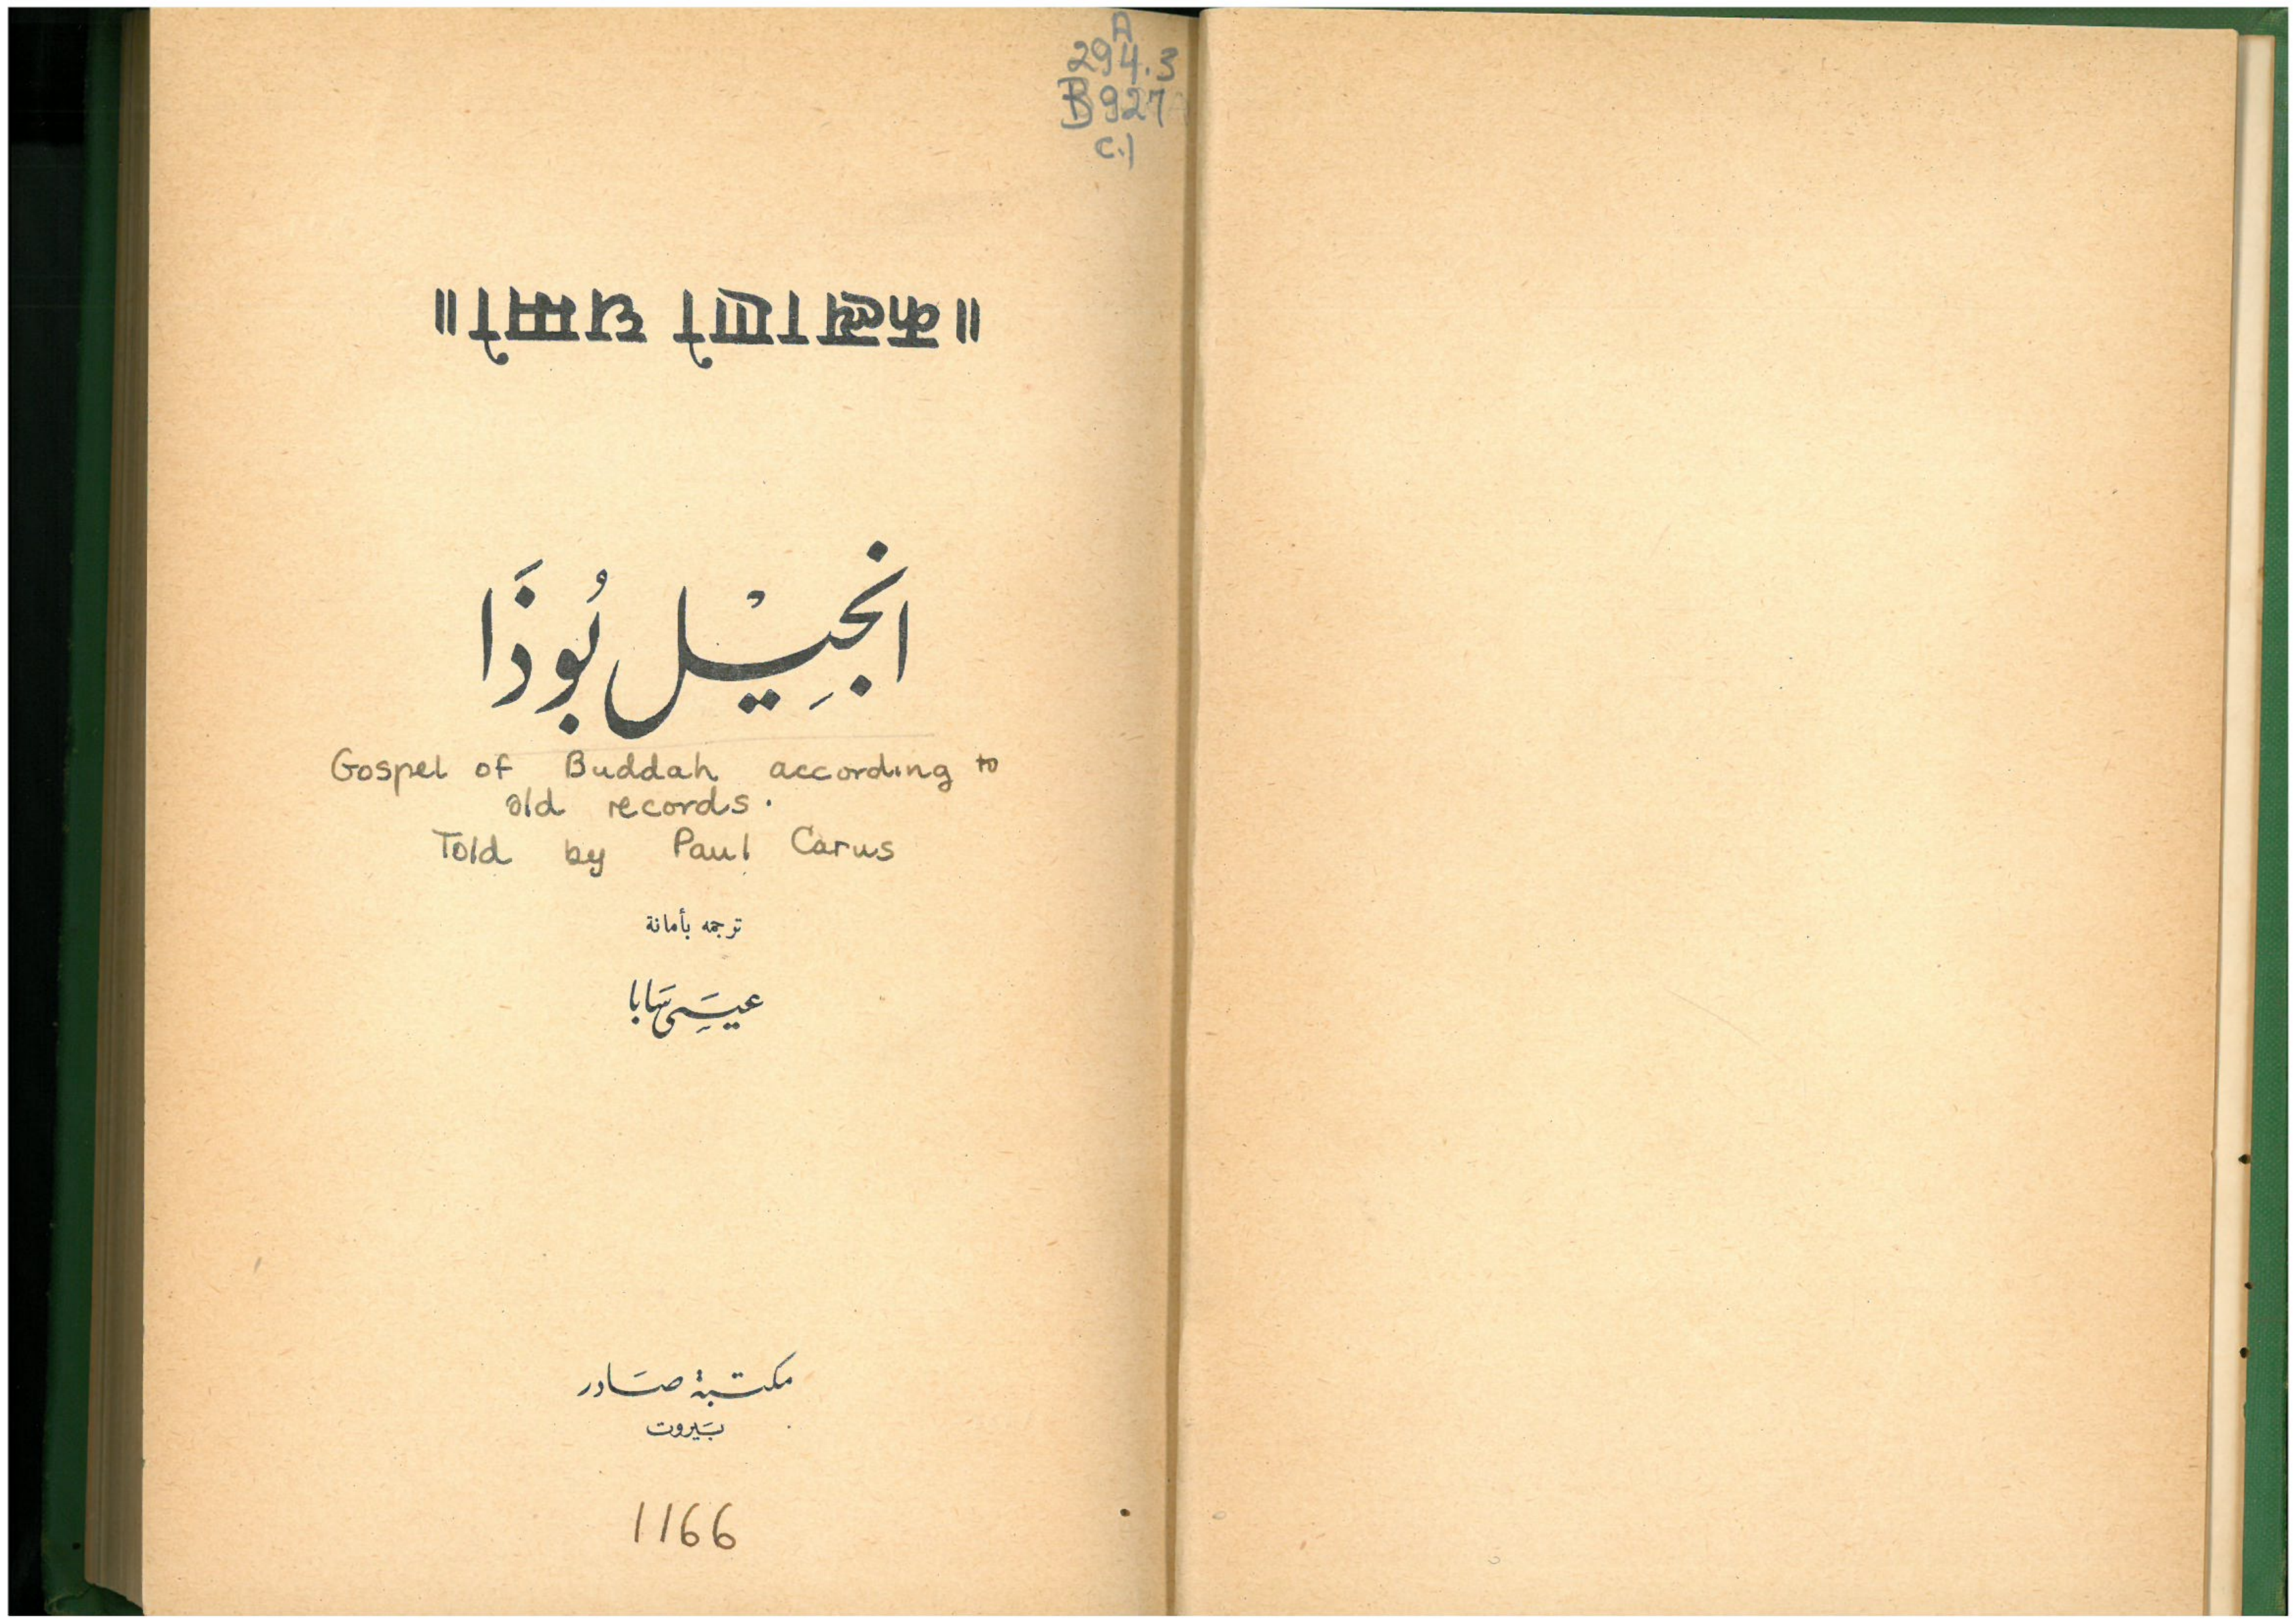 A
294.3
B927
c.1
॥ कल्याणो धम्मो ॥
انجِيْل بُوذَا
Gospel of Buddah according to
old records.
Told by Paul Carus
ترجمه بأمانة
عيسَى سَابا
مكتبة صَادر
بَيروت
1166